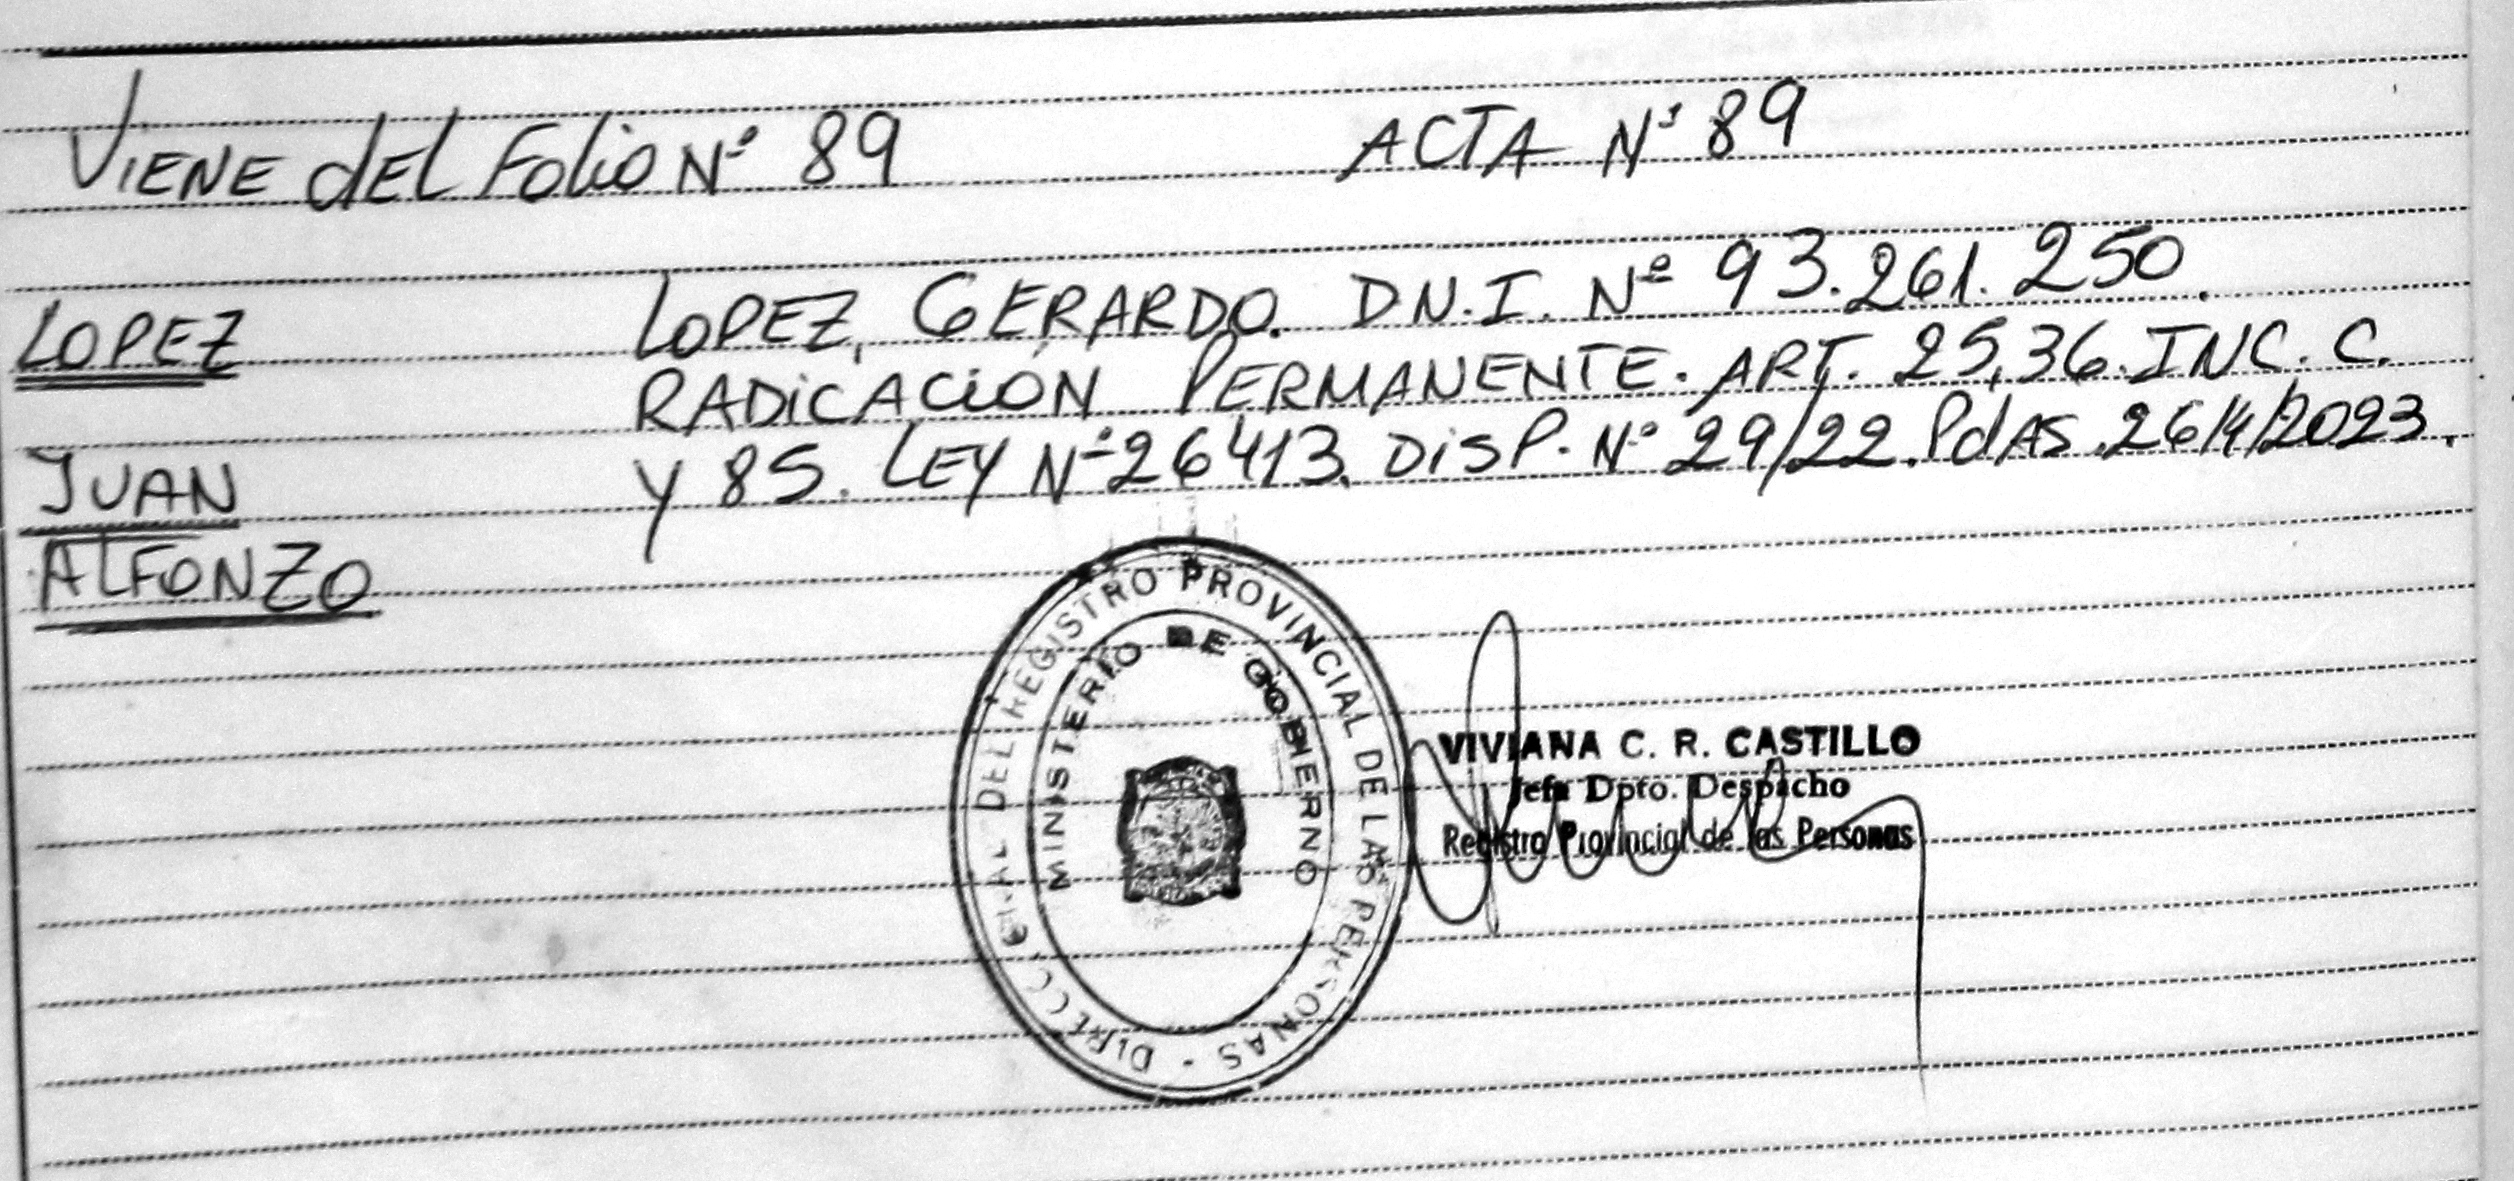 VIENE dEL FOLIO Nº 89
ACTA Nº 89
LOPEZ
JUAN
ALFONZO
LOPEZ, GERARDO. D.N.I. Nº 93.261.250.
RADICACIÓN PERMANENTE. ART. 25,36. INC. C.
Y 85. LEY Nº 26413. DISP. Nº 29/22. PdAS. 26/4/2023.
DIRECC GRAL DEL REGISTRO PROVINCIAL DE LAS PERSONAS -
MINISTERIO DE GOBIERNO
VIVIANA C. R. CASTILLO
Jefa Dpto. Despacho
Registro Provincial de las Personas